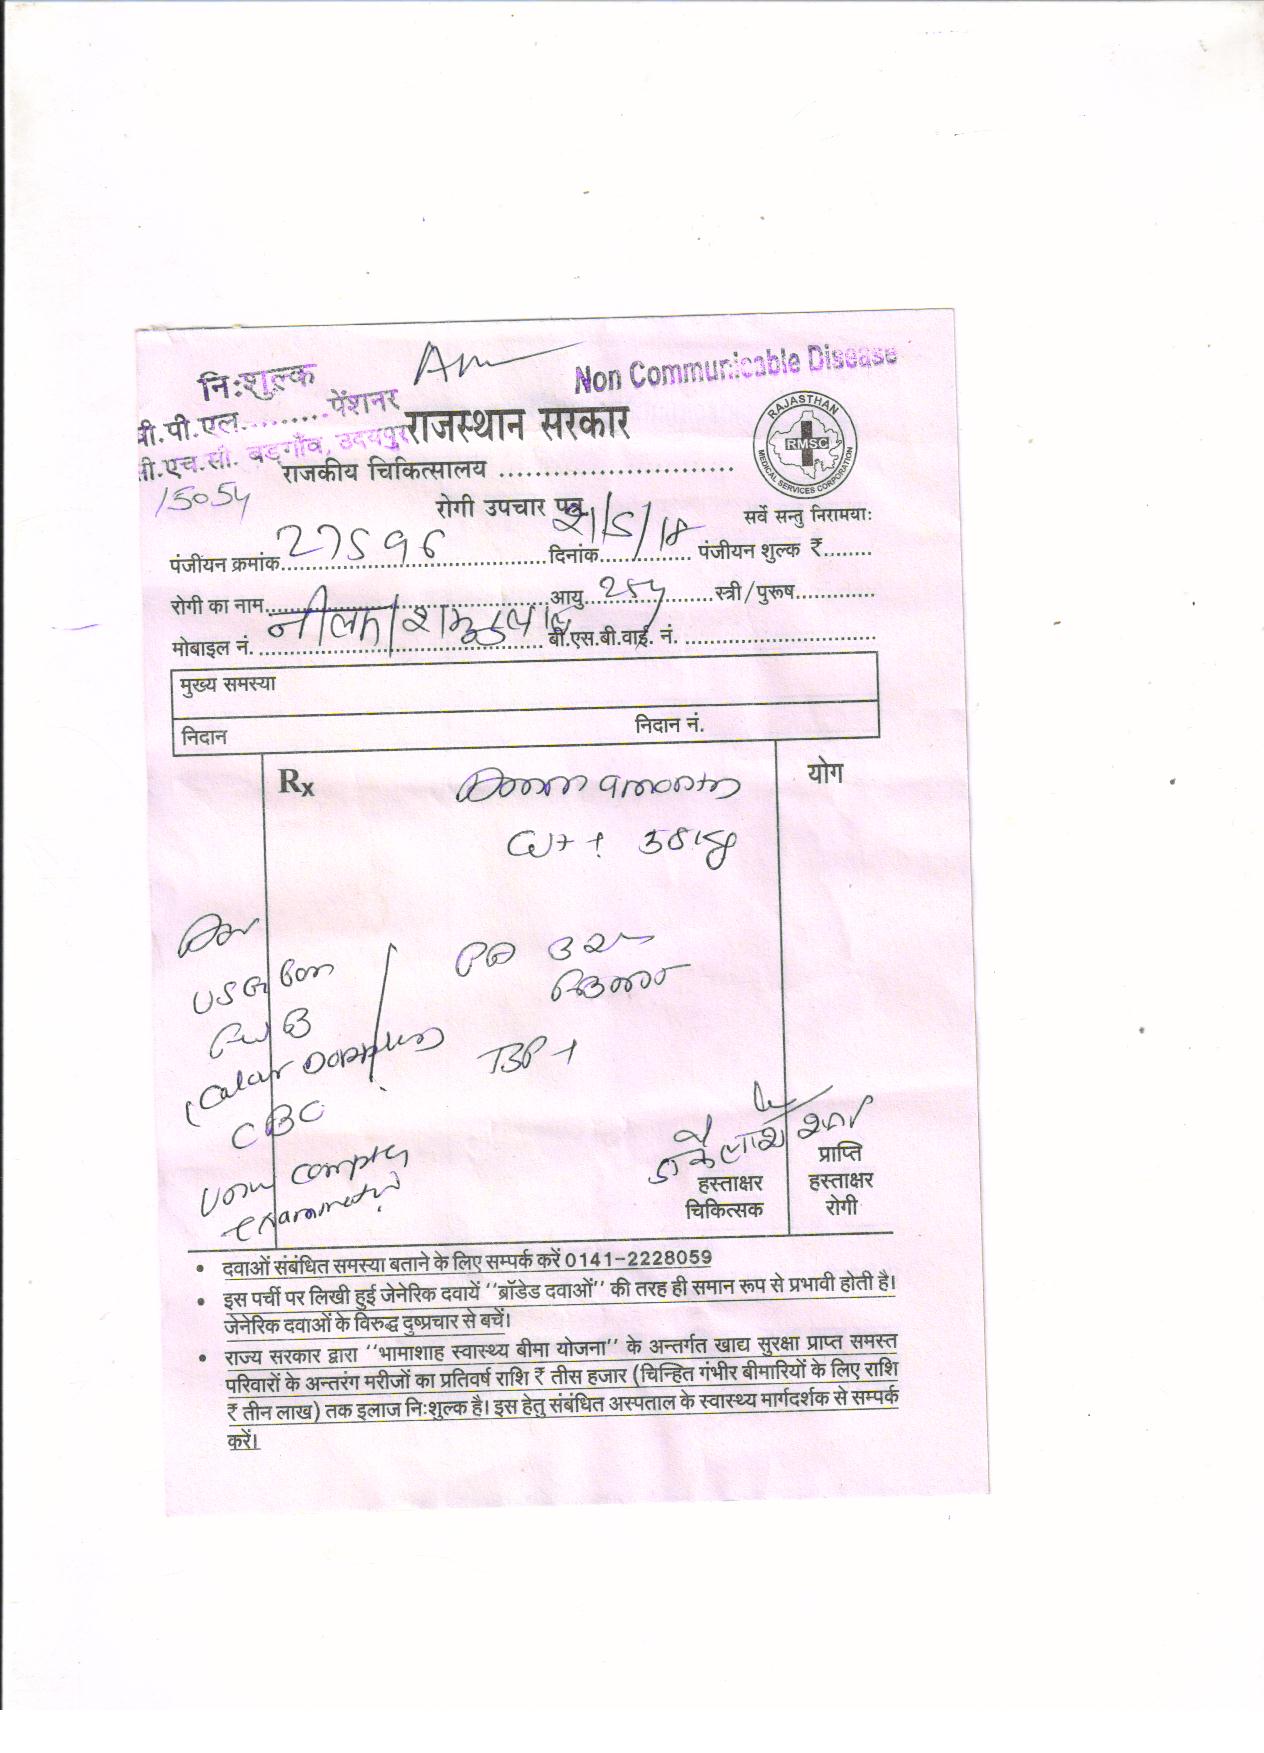 Non Communicable Disease
निःशुल्क
बी.पी.एल........पेंशनर
राजस्थान सरकार
सी.एच.सी. बड़गाँव, उदयपुर
राजकीय चिकित्सालय
RAJASTHAN
RMSC
MEDICAL SERVICES CORPORATION
15054
रोगी उपचार पत्र
सर्वे सन्तु निरामयाः
पंजीयन क्रमांक 27596 दिनांक 21/5/18 पंजीयन शुल्क ₹........
रोगी का नाम आयु 25y स्त्री/पुरूष
मोबाइल नं. बी.एस.बी.वाई. नं.
मुख्य समस्या
निदान निदान नं.
Rx योग
9 month
Wt 38 kg
USG for
FWB
(Color Doppler)
CBC
Urine complete
examination
प्राप्ति
हस्ताक्षर हस्ताक्षर
चिकित्सक रोगी
• दवाओं संबंधित समस्या बताने के लिए सम्पर्क करें 0141-2228059
• इस पर्ची पर लिखी हुई जेनेरिक दवायें ''ब्रॉडेड दवाओं'' की तरह ही समान रूप से प्रभावी होती है।
जेनेरिक दवाओं के विरुद्ध दुष्प्रचार से बचें।
• राज्य सरकार द्वारा ''भामाशाह स्वास्थ्य बीमा योजना'' के अन्तर्गत खाद्य सुरक्षा प्राप्त समस्त
परिवारों के अन्तरंग मरीजों का प्रतिवर्ष राशि ₹ तीस हजार (चिन्हित गंभीर बीमारियों के लिए राशि
₹ तीन लाख) तक इलाज निःशुल्क है। इस हेतु संबंधित अस्पताल के स्वास्थ्य मार्गदर्शक से सम्पर्क
करें।